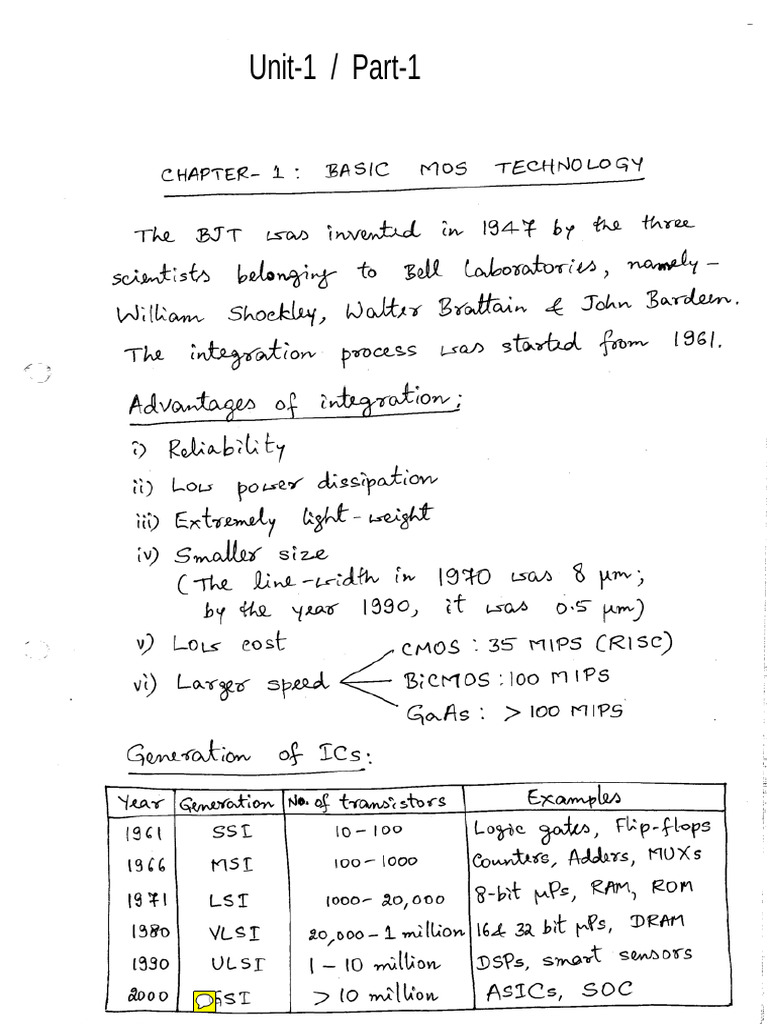 Unit-1 / Part-1
CHAPTER-1: BASIC MOS TECHNOLOGY
The BJT was invented in 1947 by the three
scientists belonging to Bell Laboratories, namely-
William Shockley, Walter Brattain & John Bardeen.
The integration process was started from 1961.
Advantages of integration:
i) Reliability
ii) Low power dissipation
iii) Extremely light-weight
iv) Smaller size
(The line-width in 1970 was 8 μm;
by the year 1990, it was 0.5 μm)
v) Low cost
vi) Larger speed
CMOS : 35 MIPS (RISC)
BiCMOS : 100 MIPS
GaAs : > 100 MIPS
Generation of ICs:
Year Generation No. of transistors Examples
1961 SSI 10-100 Logic gates, Flip-flops
1966 MSI 100-1000 Counters, Adders, MUXs
1971 LSI 1000-20,000 8-bit μPs, RAM, ROM
1980 VLSI 20,000-1 million 16 & 32 bit μPs, DRAM
1990 ULSI 1-10 million DSPs, smart sensors
2000 > 10 million ASICs, SOC